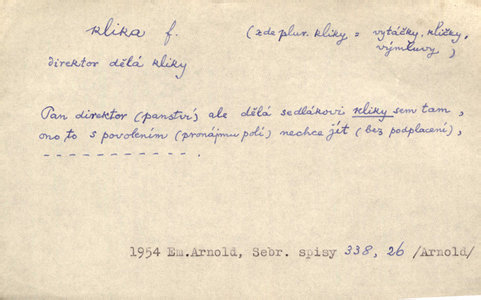 klika f. (zde plur. kliky = vytáčky, kličky,
výmluvy)
direktor dělá kliky
Pan direktor (panství) ale dělá sedlákovi kliky sem tam,
ono to s povolením (pronájmu polí) nechce jít (bez podplacení),
- - - - - - - - - - - .
1954 Em.Arnold, Sebr. spisy 338, 26 /Arnold/